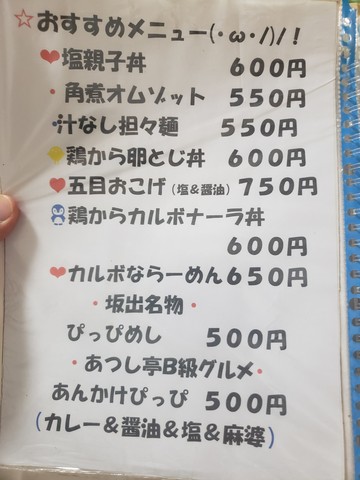 ☆おすすめメニュー(・ω・)/!
❤塩親子丼 600円
・角煮オムゾット 550円
汁なし担々麺 550円
鶏から卵とじ丼 600円
❤五目おこげ(塩&醤油) 750円
鶏からカルボナーラ丼
600円
❤カルボならーめん 650円
・坂出名物・
ぴっぴめし 500円
・あつし亭B級グルメ・
あんかけぴっぴ 500円
(カレー&醤油&塩&麻婆)